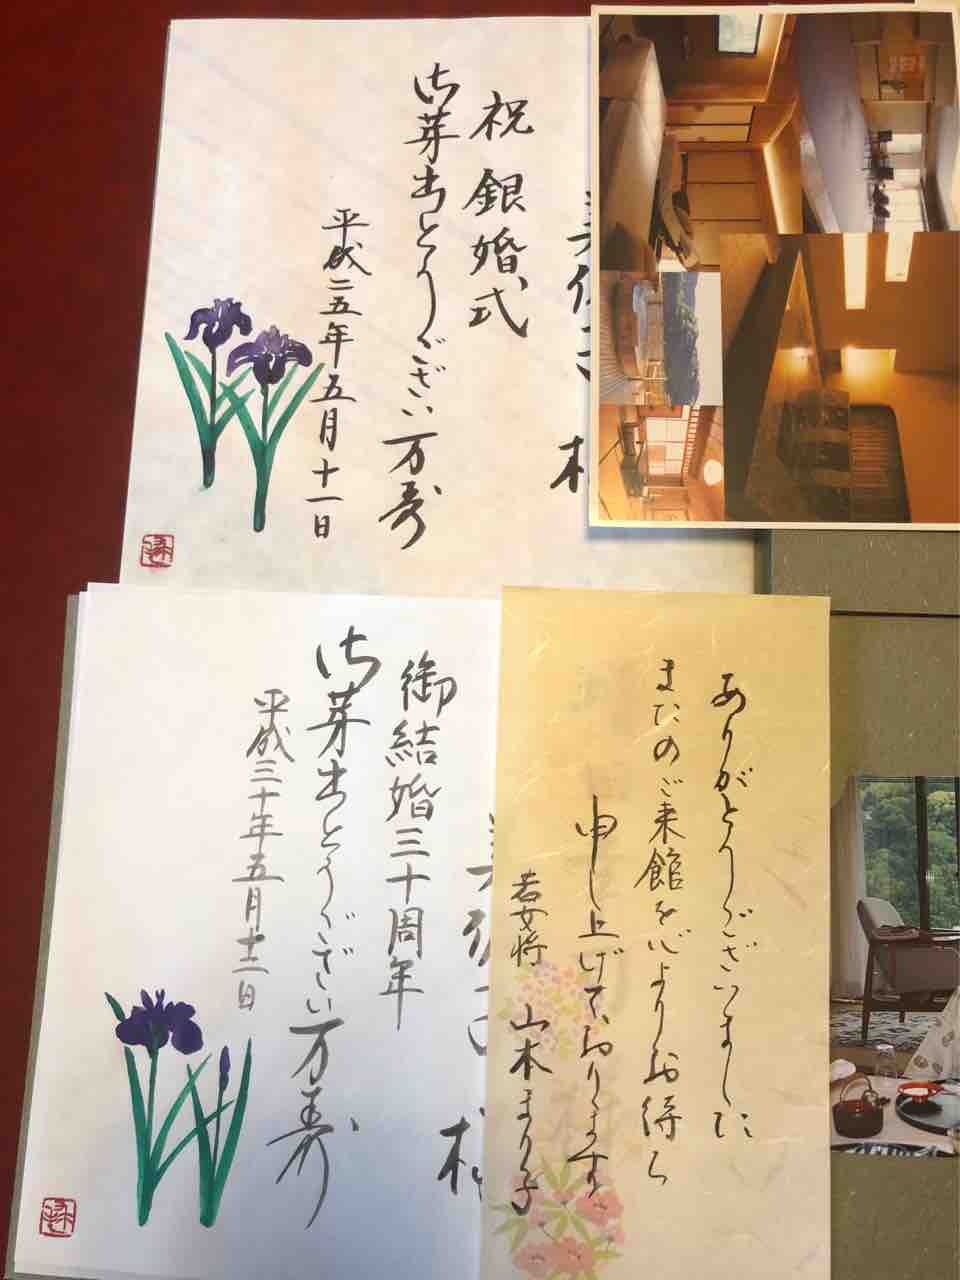 祝 銀婚式
御芽出とうござい万寿
平成二五年五月十一日
御結婚三十周年
御芽出とうござい万寿
平成三十年五月十二日
ありがとうございました
またのご来館を心よりお待ち
申し上げております
若女将 山本まり子